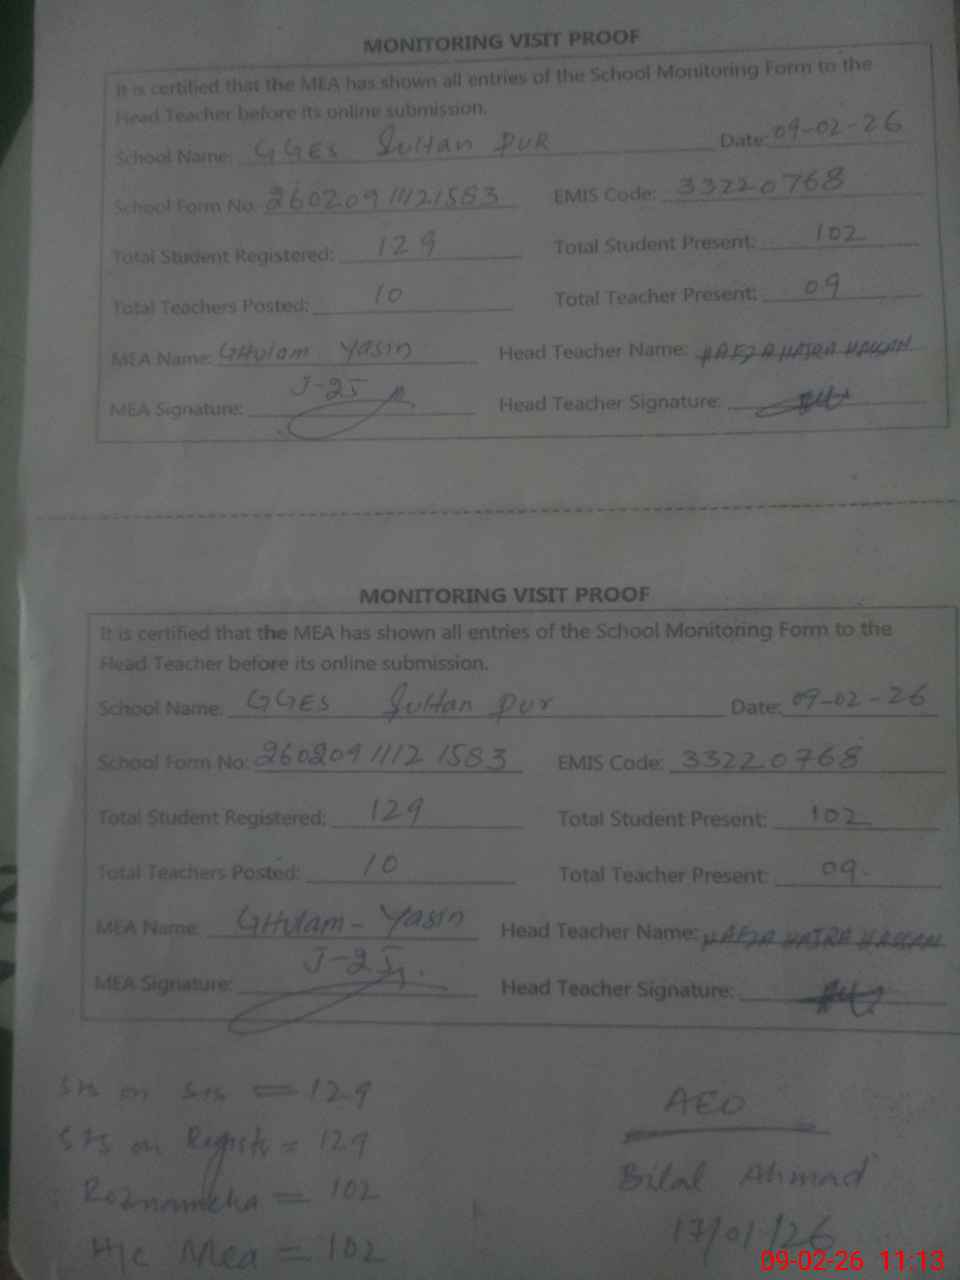 MONITORING VISIT PROOF
It is certified that the MEA has shown all entries of the School Monitoring Form to the
Head Teacher before its online submission.
School Name: GGES Sultan PUR Date: 09-02-26
School Form No: 260209 11121583 EMIS Code: 33220768
Total Student Registered: 129 Total Student Present: 102
Total Teachers Posted: 10 Total Teacher Present: 09
MEA Name: GHulam Yasin Head Teacher Name: HAFZA HAJRA HASSAN
MEA Signature: J-25 Head Teacher Signature:
MONITORING VISIT PROOF
It is certified that the MEA has shown all entries of the School Monitoring Form to the
Head Teacher before its online submission.
School Name: GGES Sultan Pur Date: 09-02-26
School Form No: 260209 11121583 EMIS Code: 33220768
Total Student Registered: 129 Total Student Present: 102
Total Teachers Posted: 10 Total Teacher Present: 09
MEA Name: GHulam - Yasin Head Teacher Name: HAFZA HAJRA HASSAN
MEA Signature: J-25 Head Teacher Signature:
Sts on Sis = 129
STS on Registr = 129
Roznamcha = 102
H/c Mea = 102
AEO
Bilal Ahmad
17/01/26
09-02-26 11:13